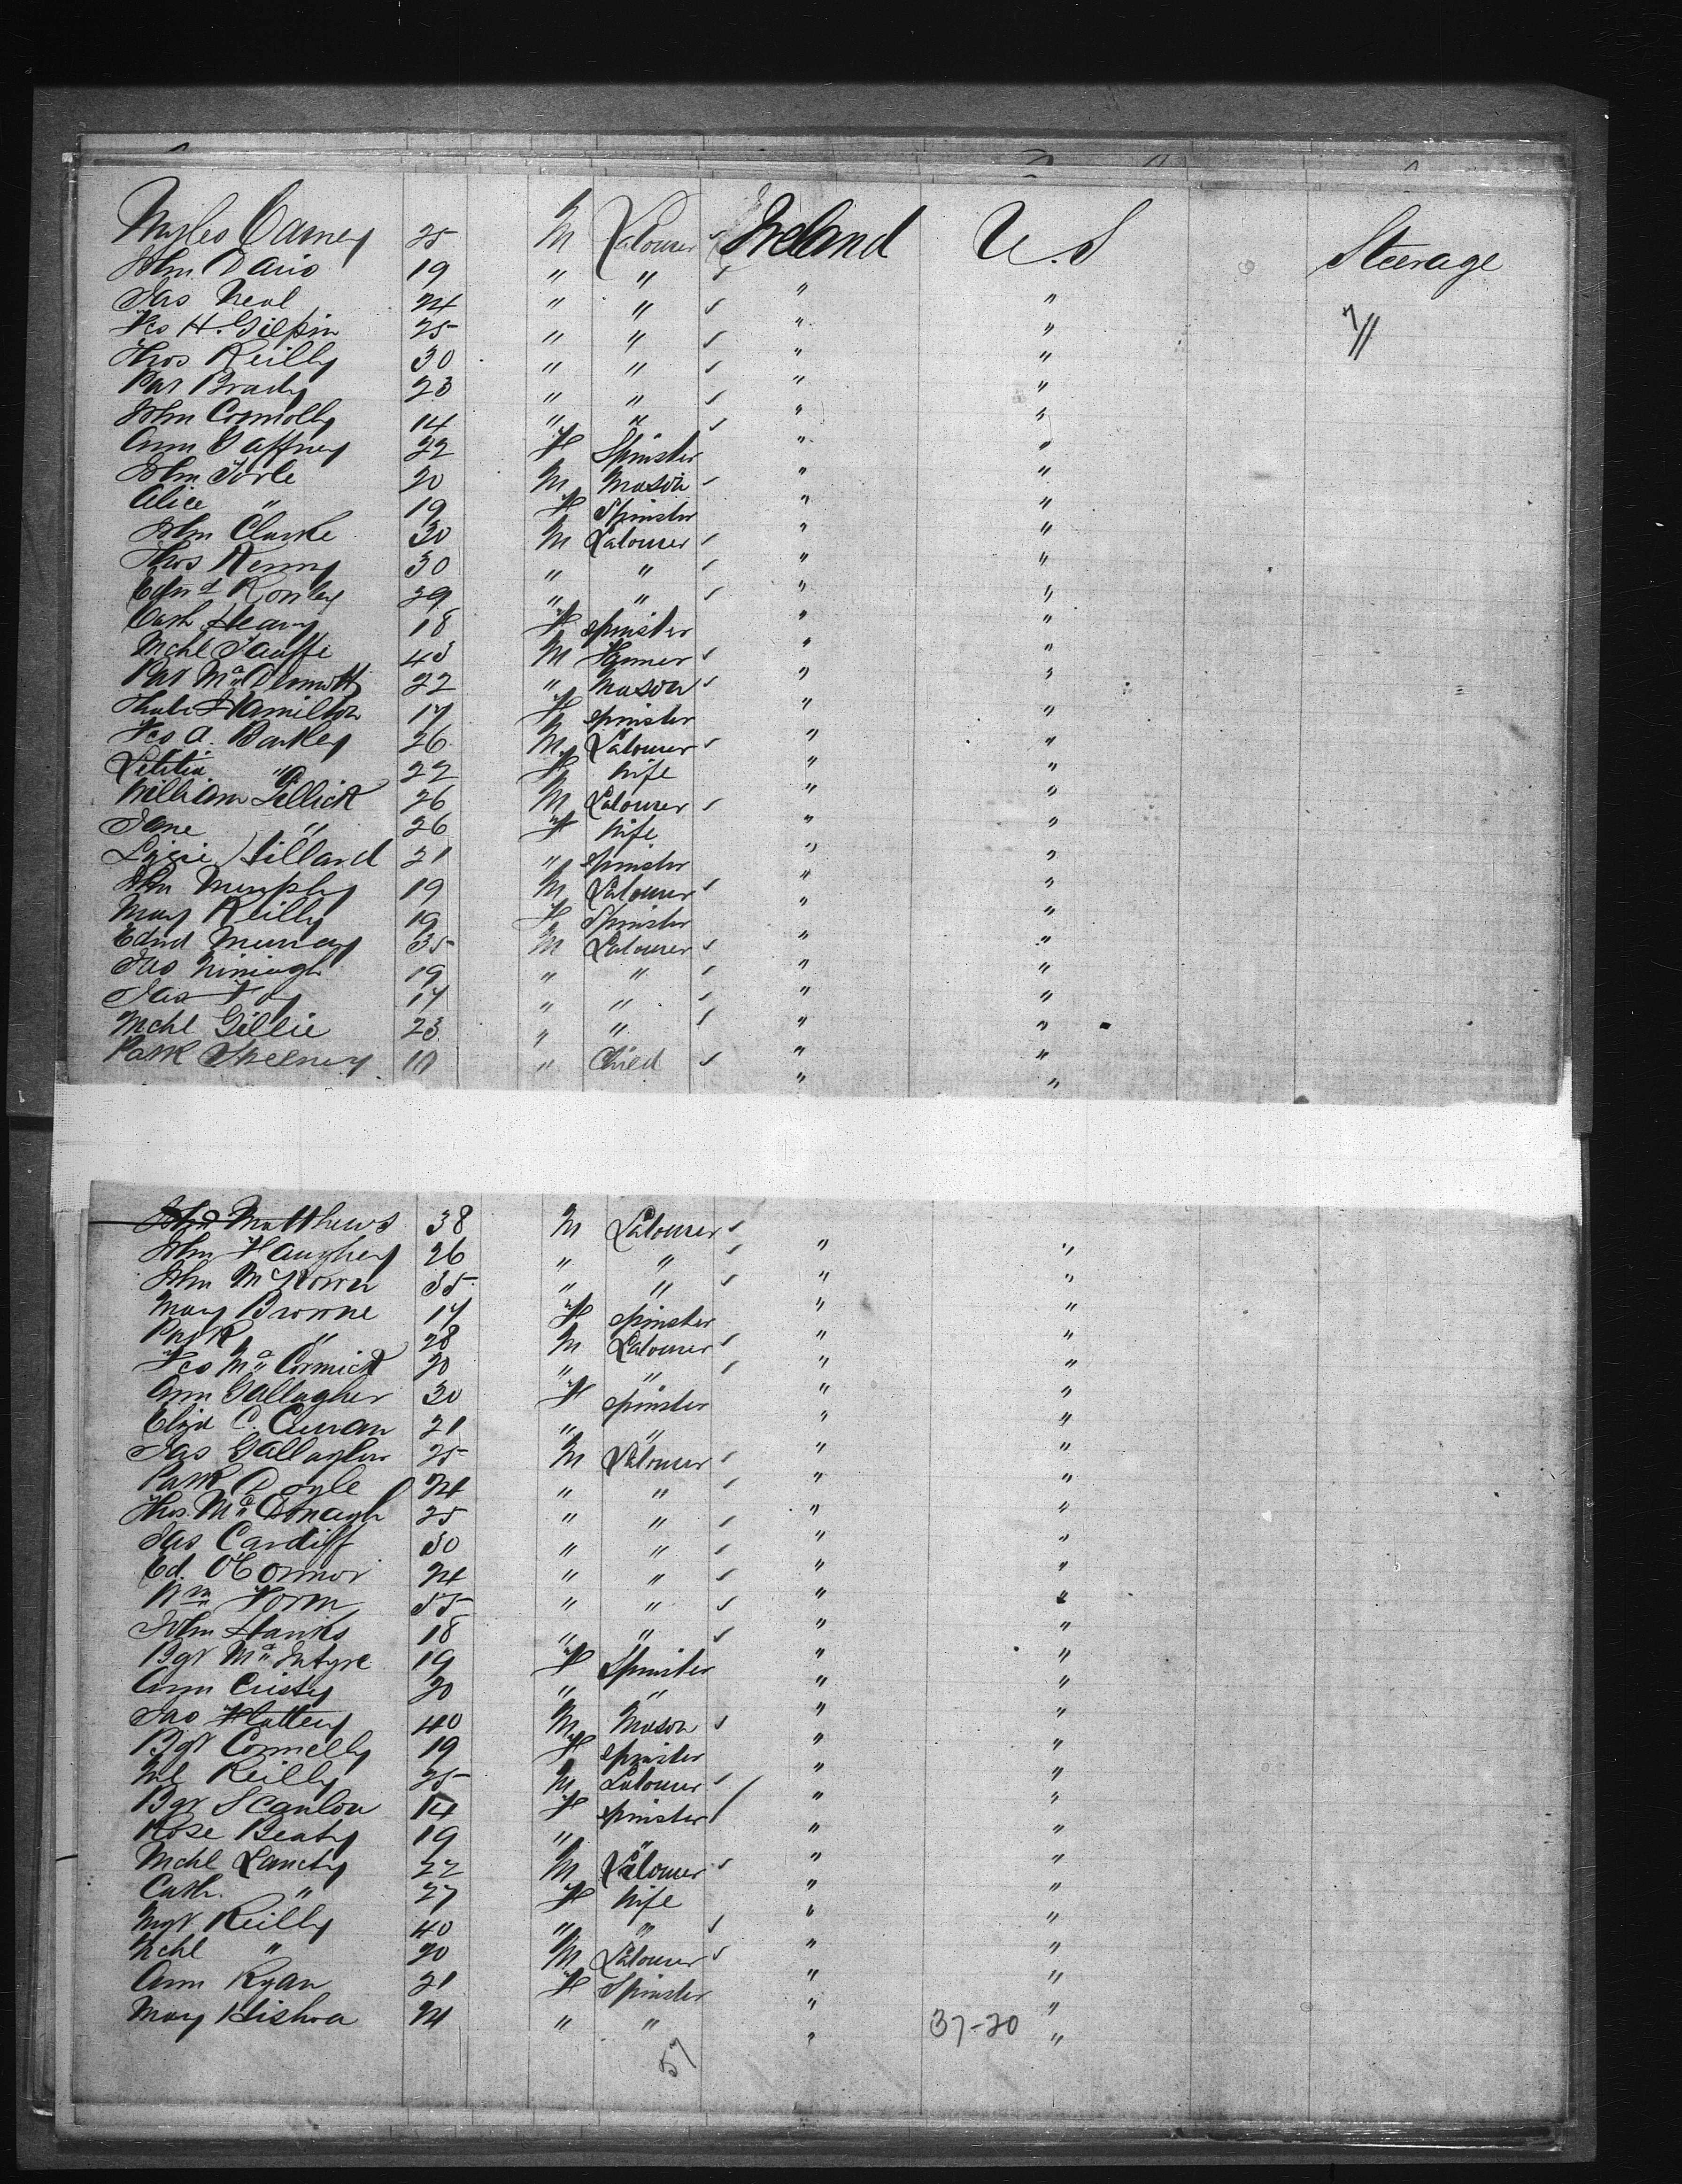 Myles Carney 25 M Labourer ✓ Ireland U.S Steerage
John Davis 19 " " ✓ " "
Jas Neal 24 " " ✓ " " "
Fcs H. Gilpin 25 " " ✓ " "
Thos Reilly 30 " " ✓ " "
Pat Brady 23 " " ✓ " "
John Connolly 14 " " ✓ " "
Ann Gaffney 22 F Spinster " "
John 20 M Mason ✓ " "
Alice " 19 F Spinster " "
John Clarke 30 M Labourer ✓ " "
Thos Kenny 30 " " ✓ " "
Edmd 29 " " ✓ " "
Cath Heavy 18 F Spinster " "
Mchl 43 M ✓ " "
Pat Mc Dermott 22 " Mason ✓ " "
Hamilton 17 F Spinster " "
Fcs A. Barkley 26 M Labourer ✓ " "
Letitia " 22 F Wife " "
William Gellick 26 M Labourer ✓ " "
Jane " 26 F Wife " "
Lizzie Hilland 21 " Spinster " "
John Murphy 19 M Labourer ✓ " "
Mary Reilly 19 F Spinster " "
Edmd Murray 35 M Labourer ✓ " "
Jas 19 " " ✓ " "
Jas Foy 17 " " ✓ " "
Mchl Gillie 23 " " ✓ " "
Patk 10 " Child ✓ " "
John Matthews 38 M Labourer ✓
John Haughey 26 " " ✓ " "
John McKown 35 " " ✓ " "
Mary Browne 17 F Spinster " "
Patk " 28 M Labourer ✓ " "
Fcs Mc Cormick 20 " " ✓ " "
Ann Gallagher 30 F Spinster " "
Eliza C. Curran 21 " " " "
Jas Gallagher 25 M Labourer ✓ " "
Patk Doyle 24 " " ✓ " "
Thos. Mc Donagh 25 " " ✓ " "
Jas Cardiff 30 " " ✓ " "
Ed. O'Connor 24 " " ✓ " "
Wm 55 " " ✓ " "
John Hanks 18 " " ✓ " "
Bgt Mc Intyre 19 F Spinster " "
Ann Cristy 20 " " " "
Jas Flattery 40 M Mason ✓ " "
Bgt Connelly 19 F Spinster " "
Ml Reilly 25 M Labourer ✓ " "
Bgt Scanlon 14 F Spinster " "
Rose Beaty 19 " " " "
Mchl Lancty 22 M Labourer ✓ " "
Cath. " 27 F Wife " "
Mgt Reilly 40 " " ✓ " "
Mchl " 20 M Labourer ✓ " "
Ann Ryan 21 F Spinster " "
Mary 24 " " " 37-20 "
57